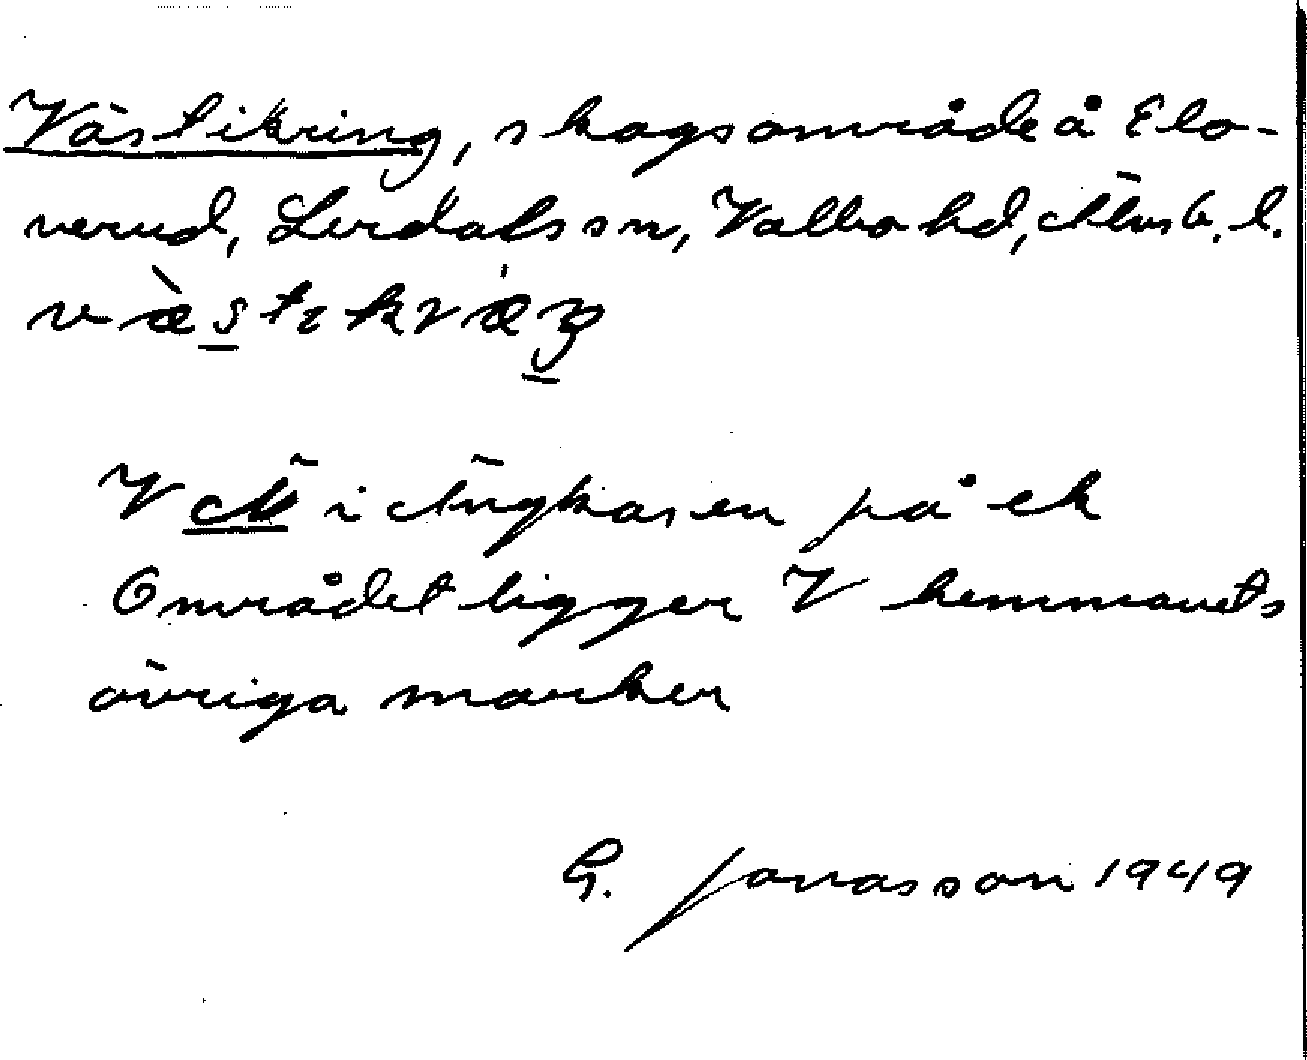 Västikring, skogsområde å Elo-
verud, Lerdals sn, Valbo hd, Älvsb. l.
V Ä i Ängkasen på ek
Området ligger V hemmanets
övriga marker
G. Jonasson 1949